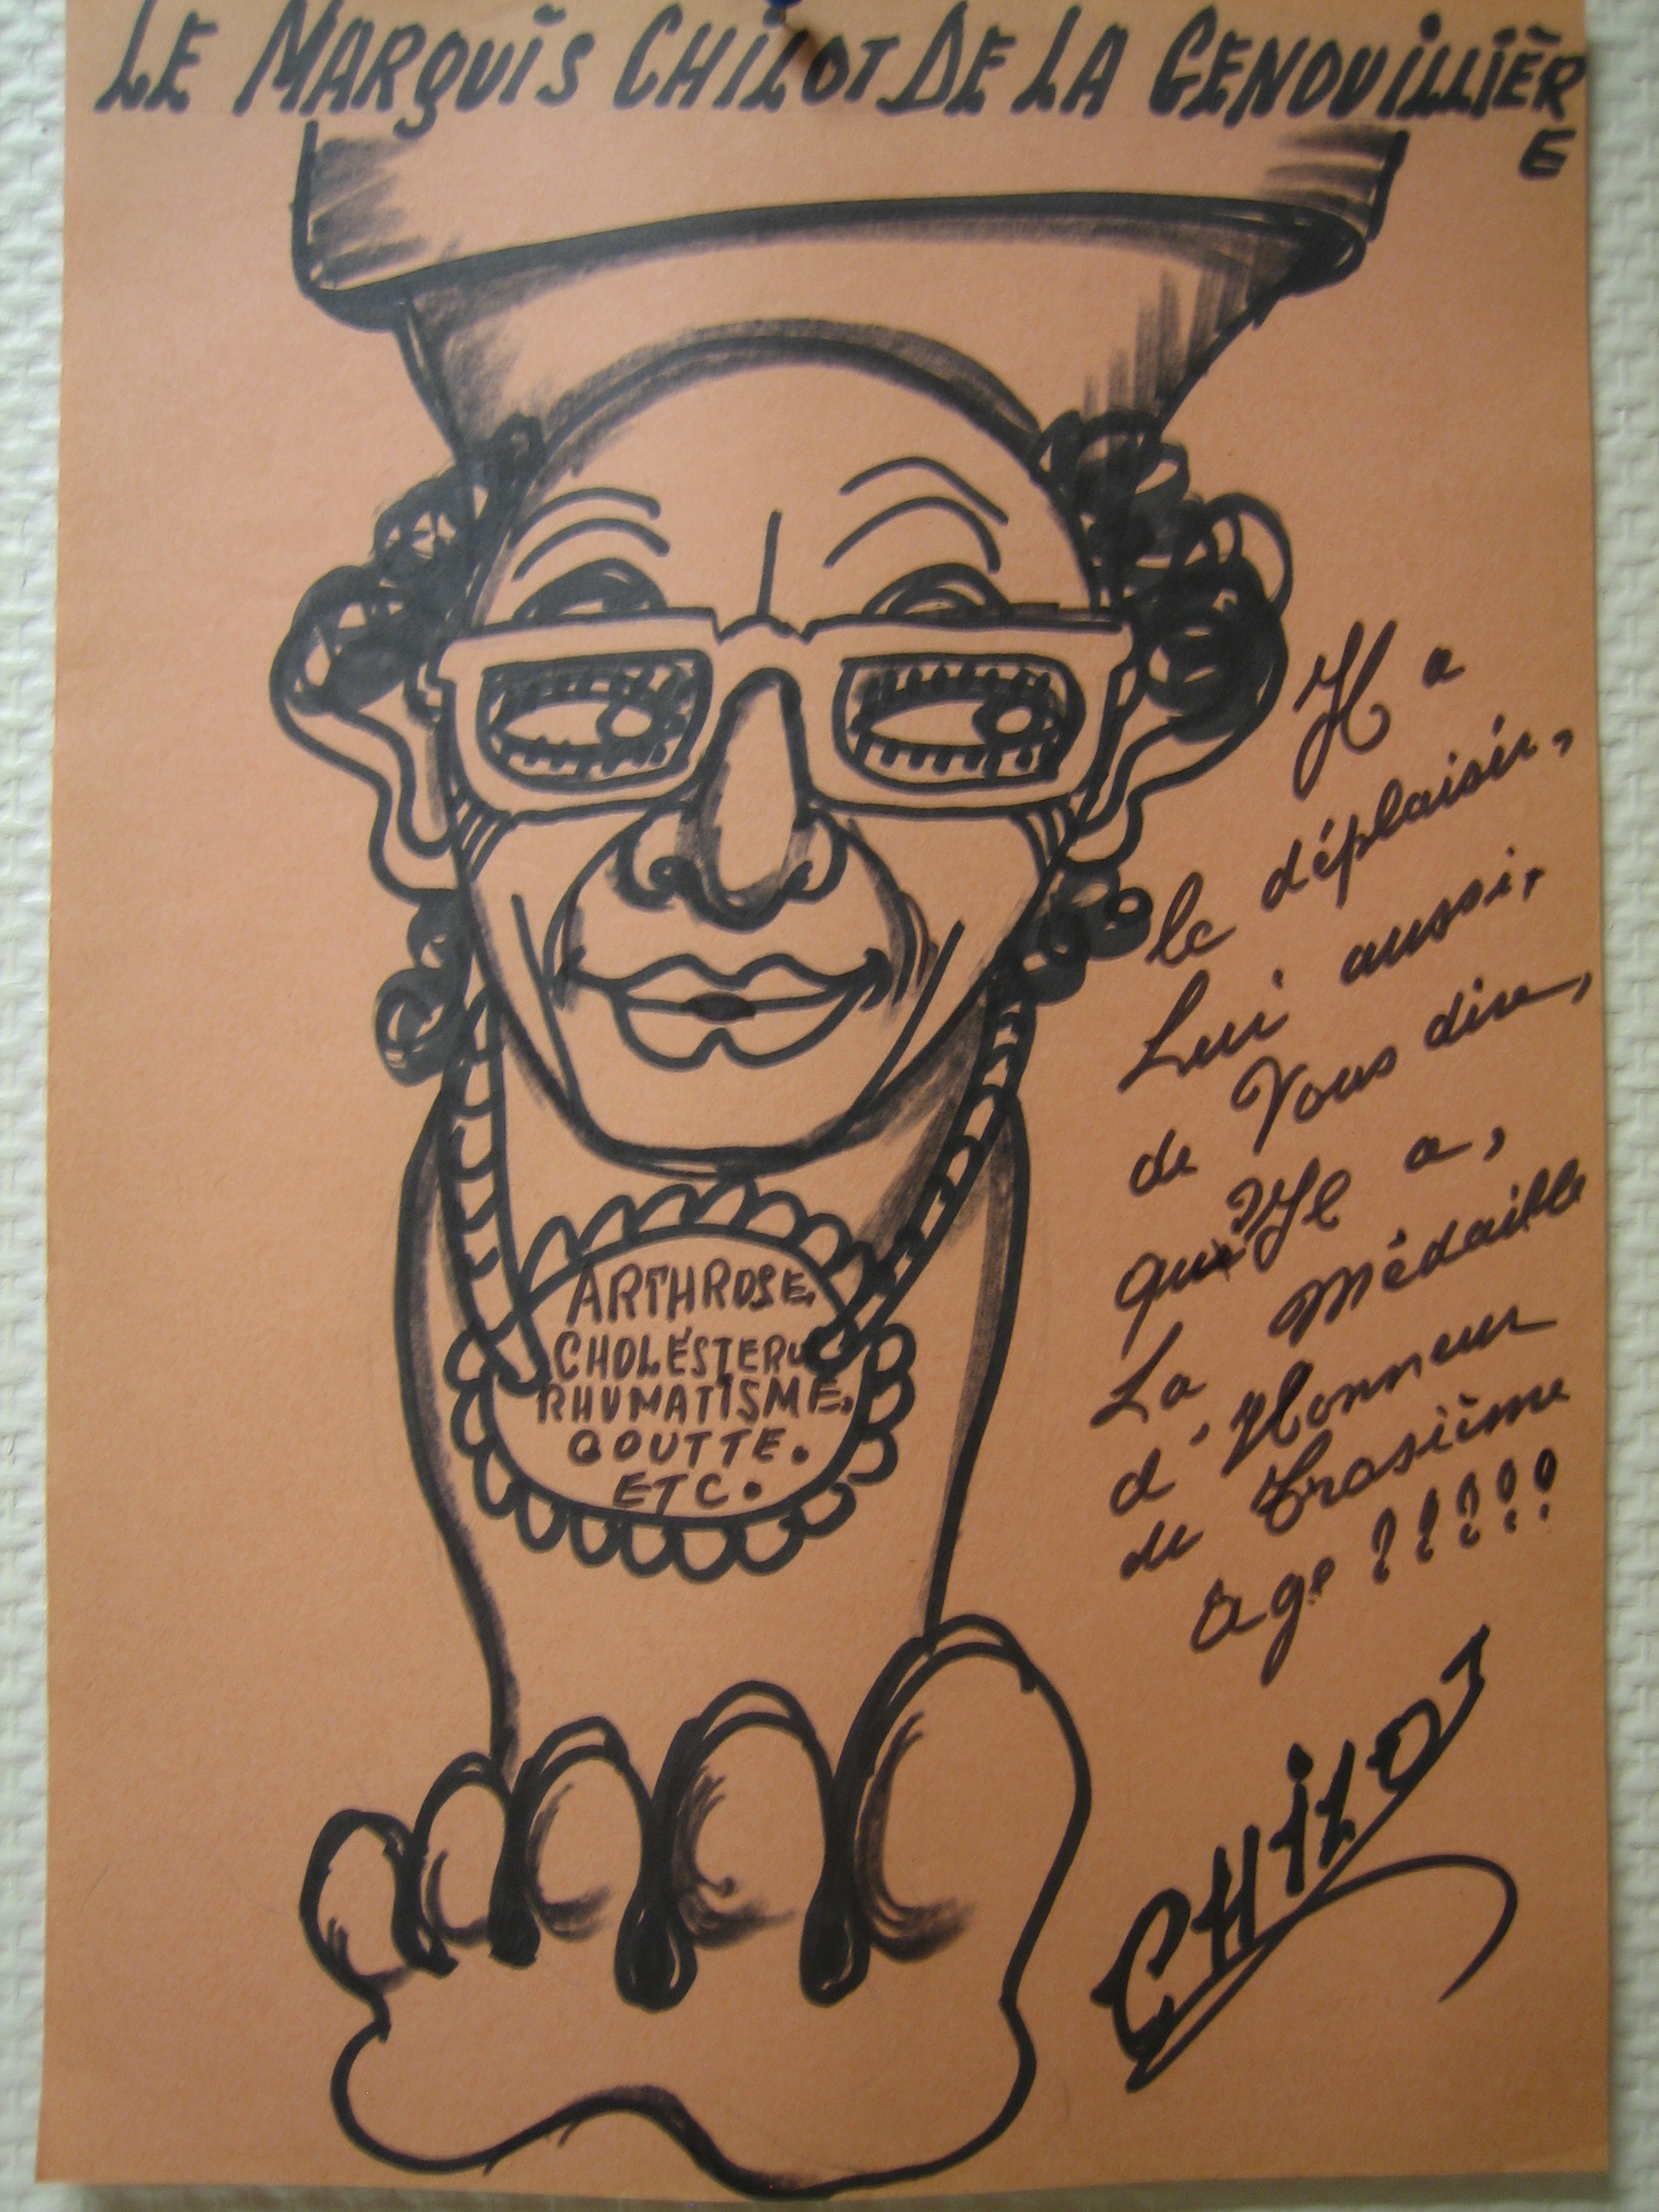 LE MARQUIS CHILOT DE LA GENOUILLIÈR
E
Il a
le déplaisir,
Lui aussi,
de Vous dire,
qu'Il a,
La Médaille
d'Honneur
de Trosième
âge ?????
ARTHROSE,
CHOLÉSTEROL
RHUMATISME,
GOUTTE.
ETC.
CHILOT